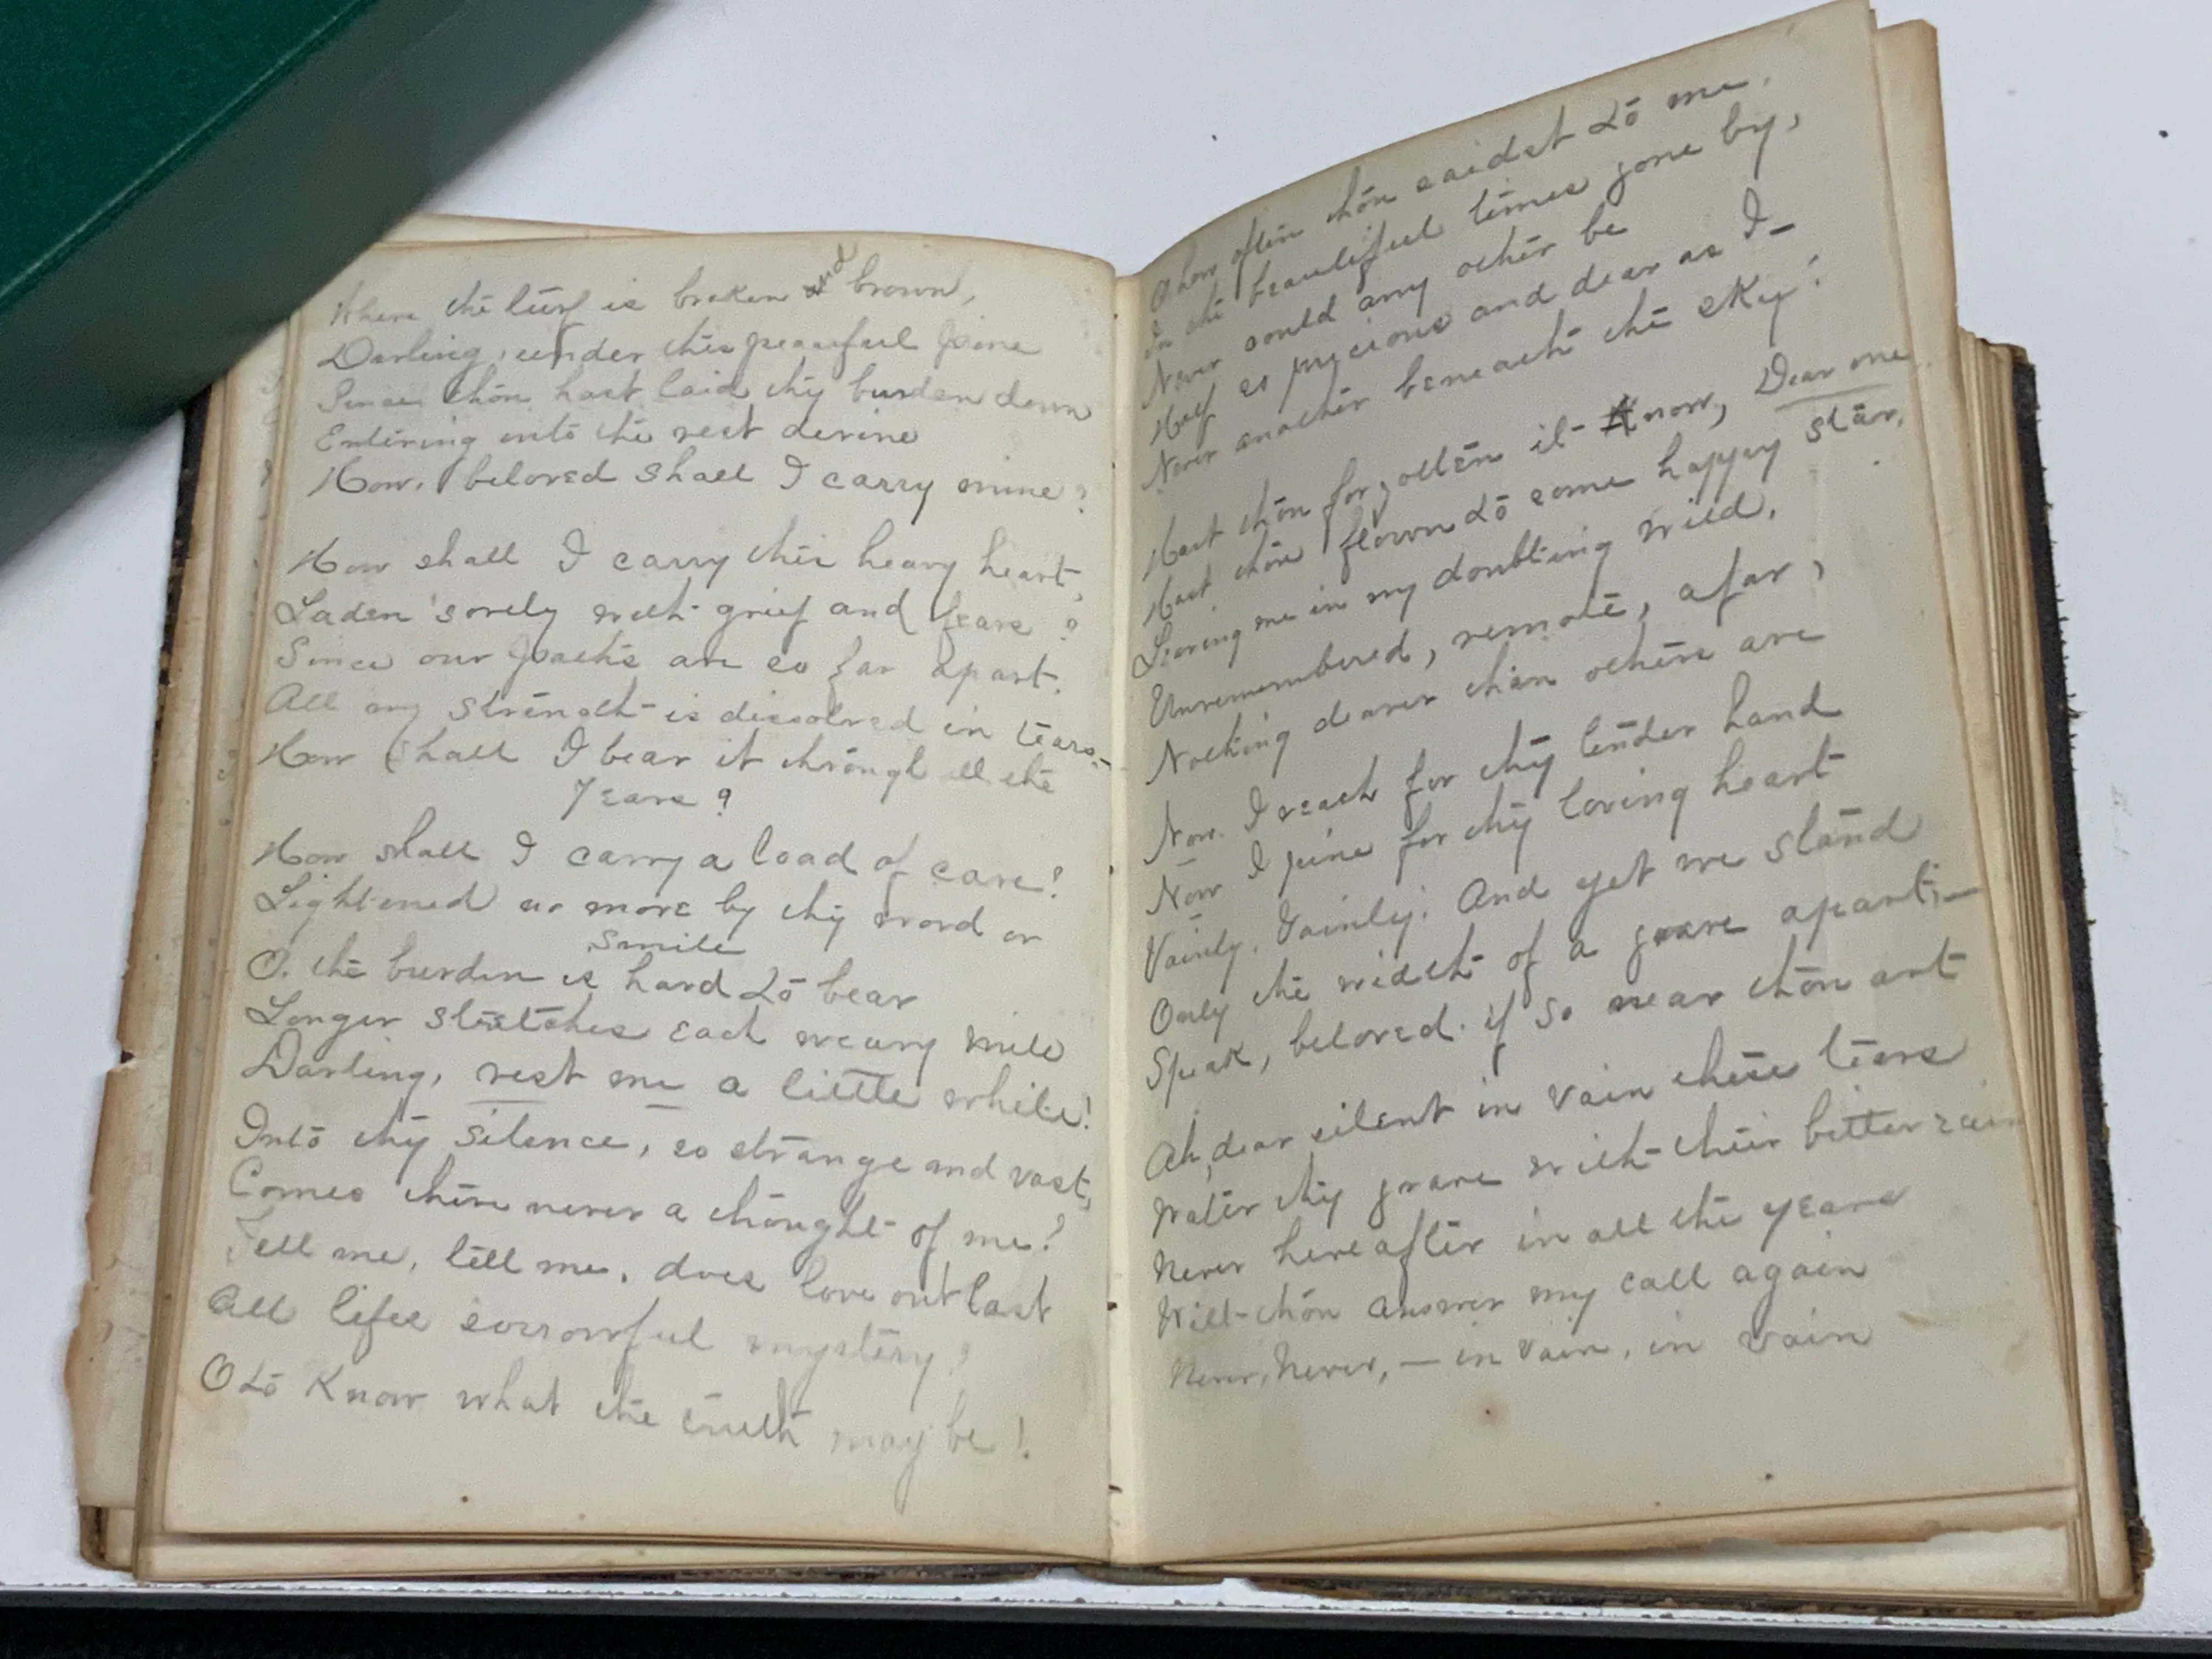 Where the turf is broken and brown,
Darling, under this peaceful pine
Since thou hast laid thy burden down
Entering into the rest divine
How, beloved shall I carry mine?
How shall I carry this heavy heart,
Laden sorely with grief and fears?
Since our paths are so far apart.
All my strength is dissolved in tears,—
How shall I bear it through all the
Years?
How shall I carry a load of care!
Lightened no more by thy word or
smile
O. the burden is hard to bear
Longer stretches each weary mile
Darling, rest me a little while!
Into thy silence, so strange and vast,
Comes there never a thought of me?
Tell me, tell me, does love outlast
All lifes sorrowful mystery?
O to know what the truth may be!
O how often thou saidst to me,
In the beautiful times gone by,
Never could any other be
Half so precious and dear as I—
Never another beneath the sky!
Hast thou forgotten it now, Dear one
Hast thou flown to some happy star,
Leaving me in my doubting wild,
Unremembered, remote, afar,
Nothing dearer than others are
Now I reach for thy tender hand
Now I pine for thy loving heart
Vainly, Vainly! And yet we stand
Only the width of a grave apart;—
Speak, beloved. if so near thou art
Ah, dear silent in vain these tears
Water thy grave with their bitter rain
Never hereafter in all the years
Wilt thou answer my call again
Never, Never, — in vain, in vain